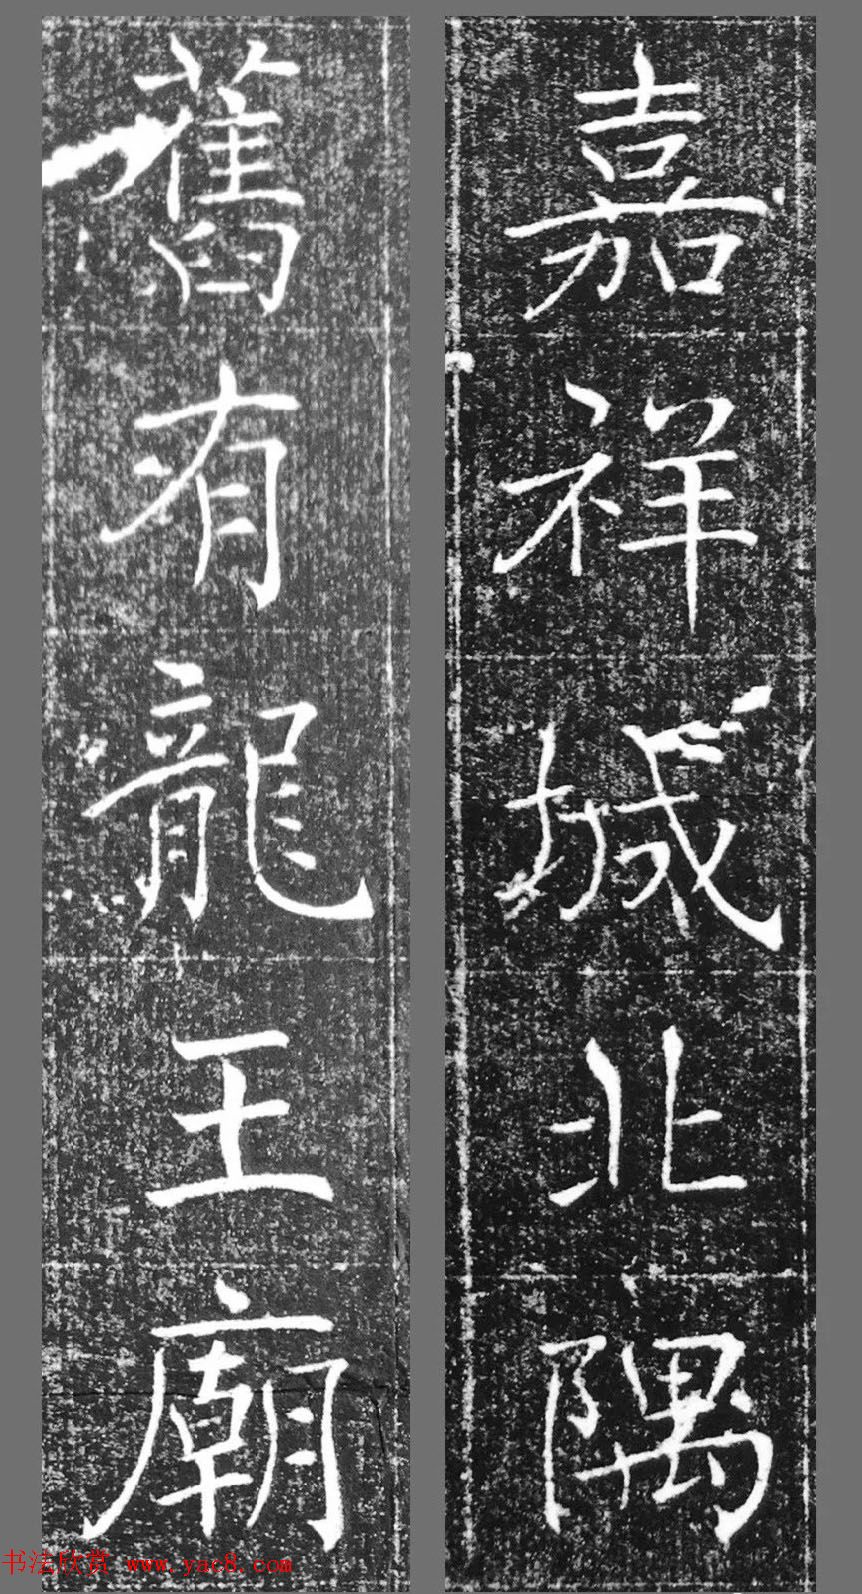 嘉祥城北隅
舊有龍王廟
书法欣赏 www.yac8.com